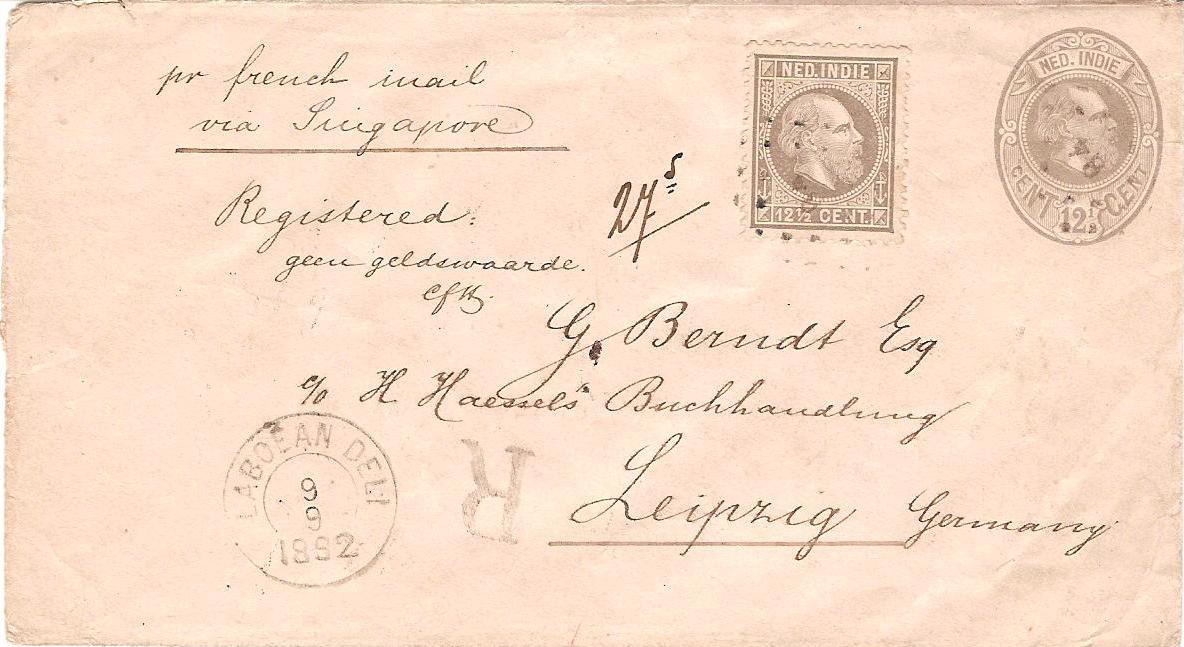 pr french mail
via Singapore
Registered.
geen geldswaarde.
27 s
NED. INDIE
12½ CENT.
NED. INDIE
CENT 12½ CENT
48
G. Berndt Esq
c/o H Haessel's Buchhandlung
Leipzig Germany
LABOEAN DELI
9
9
1882
R